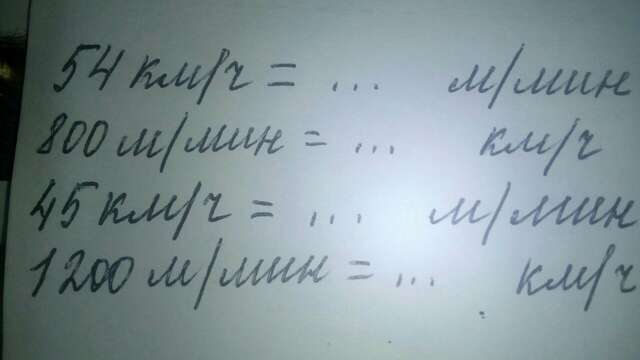 54 км/ч = ... м/мин
800 м/мин = ... км/ч
45 км/ч = ... м/мин
1200 м/мин = ... км/ч